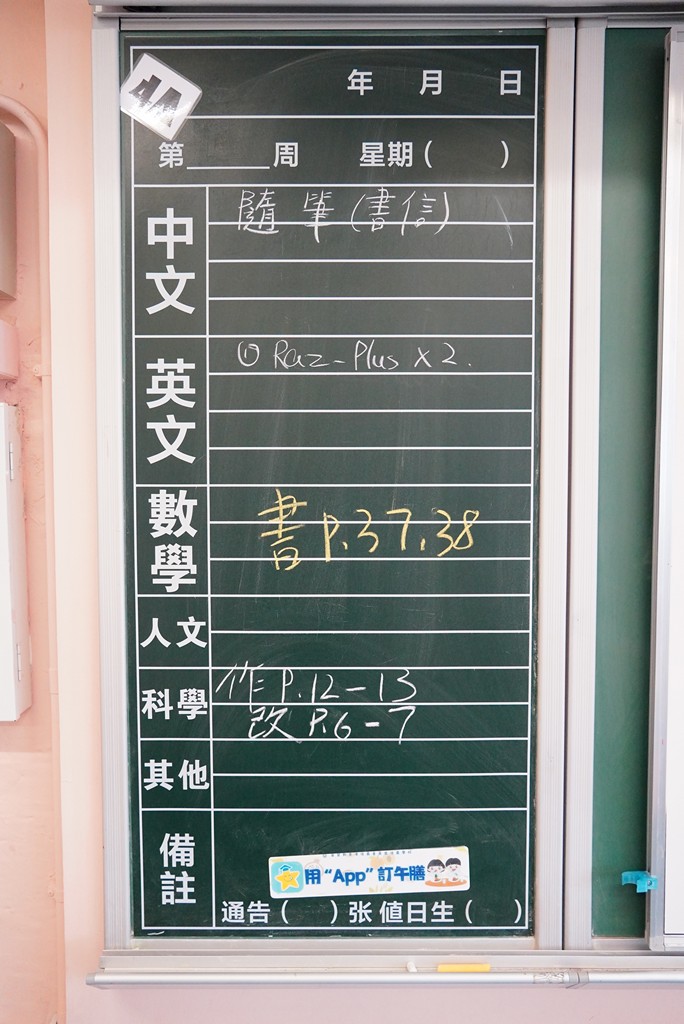 4A
年 月 日
第____周 星期( )
中文
隨筆(書信)
英文
① Raz-Plus x 2.
數學
書 P.37,38
人文
科學
作 P.12-13
改 P.6-7
其他
備註
用“App”訂午膳
通告( )张 值日生( )